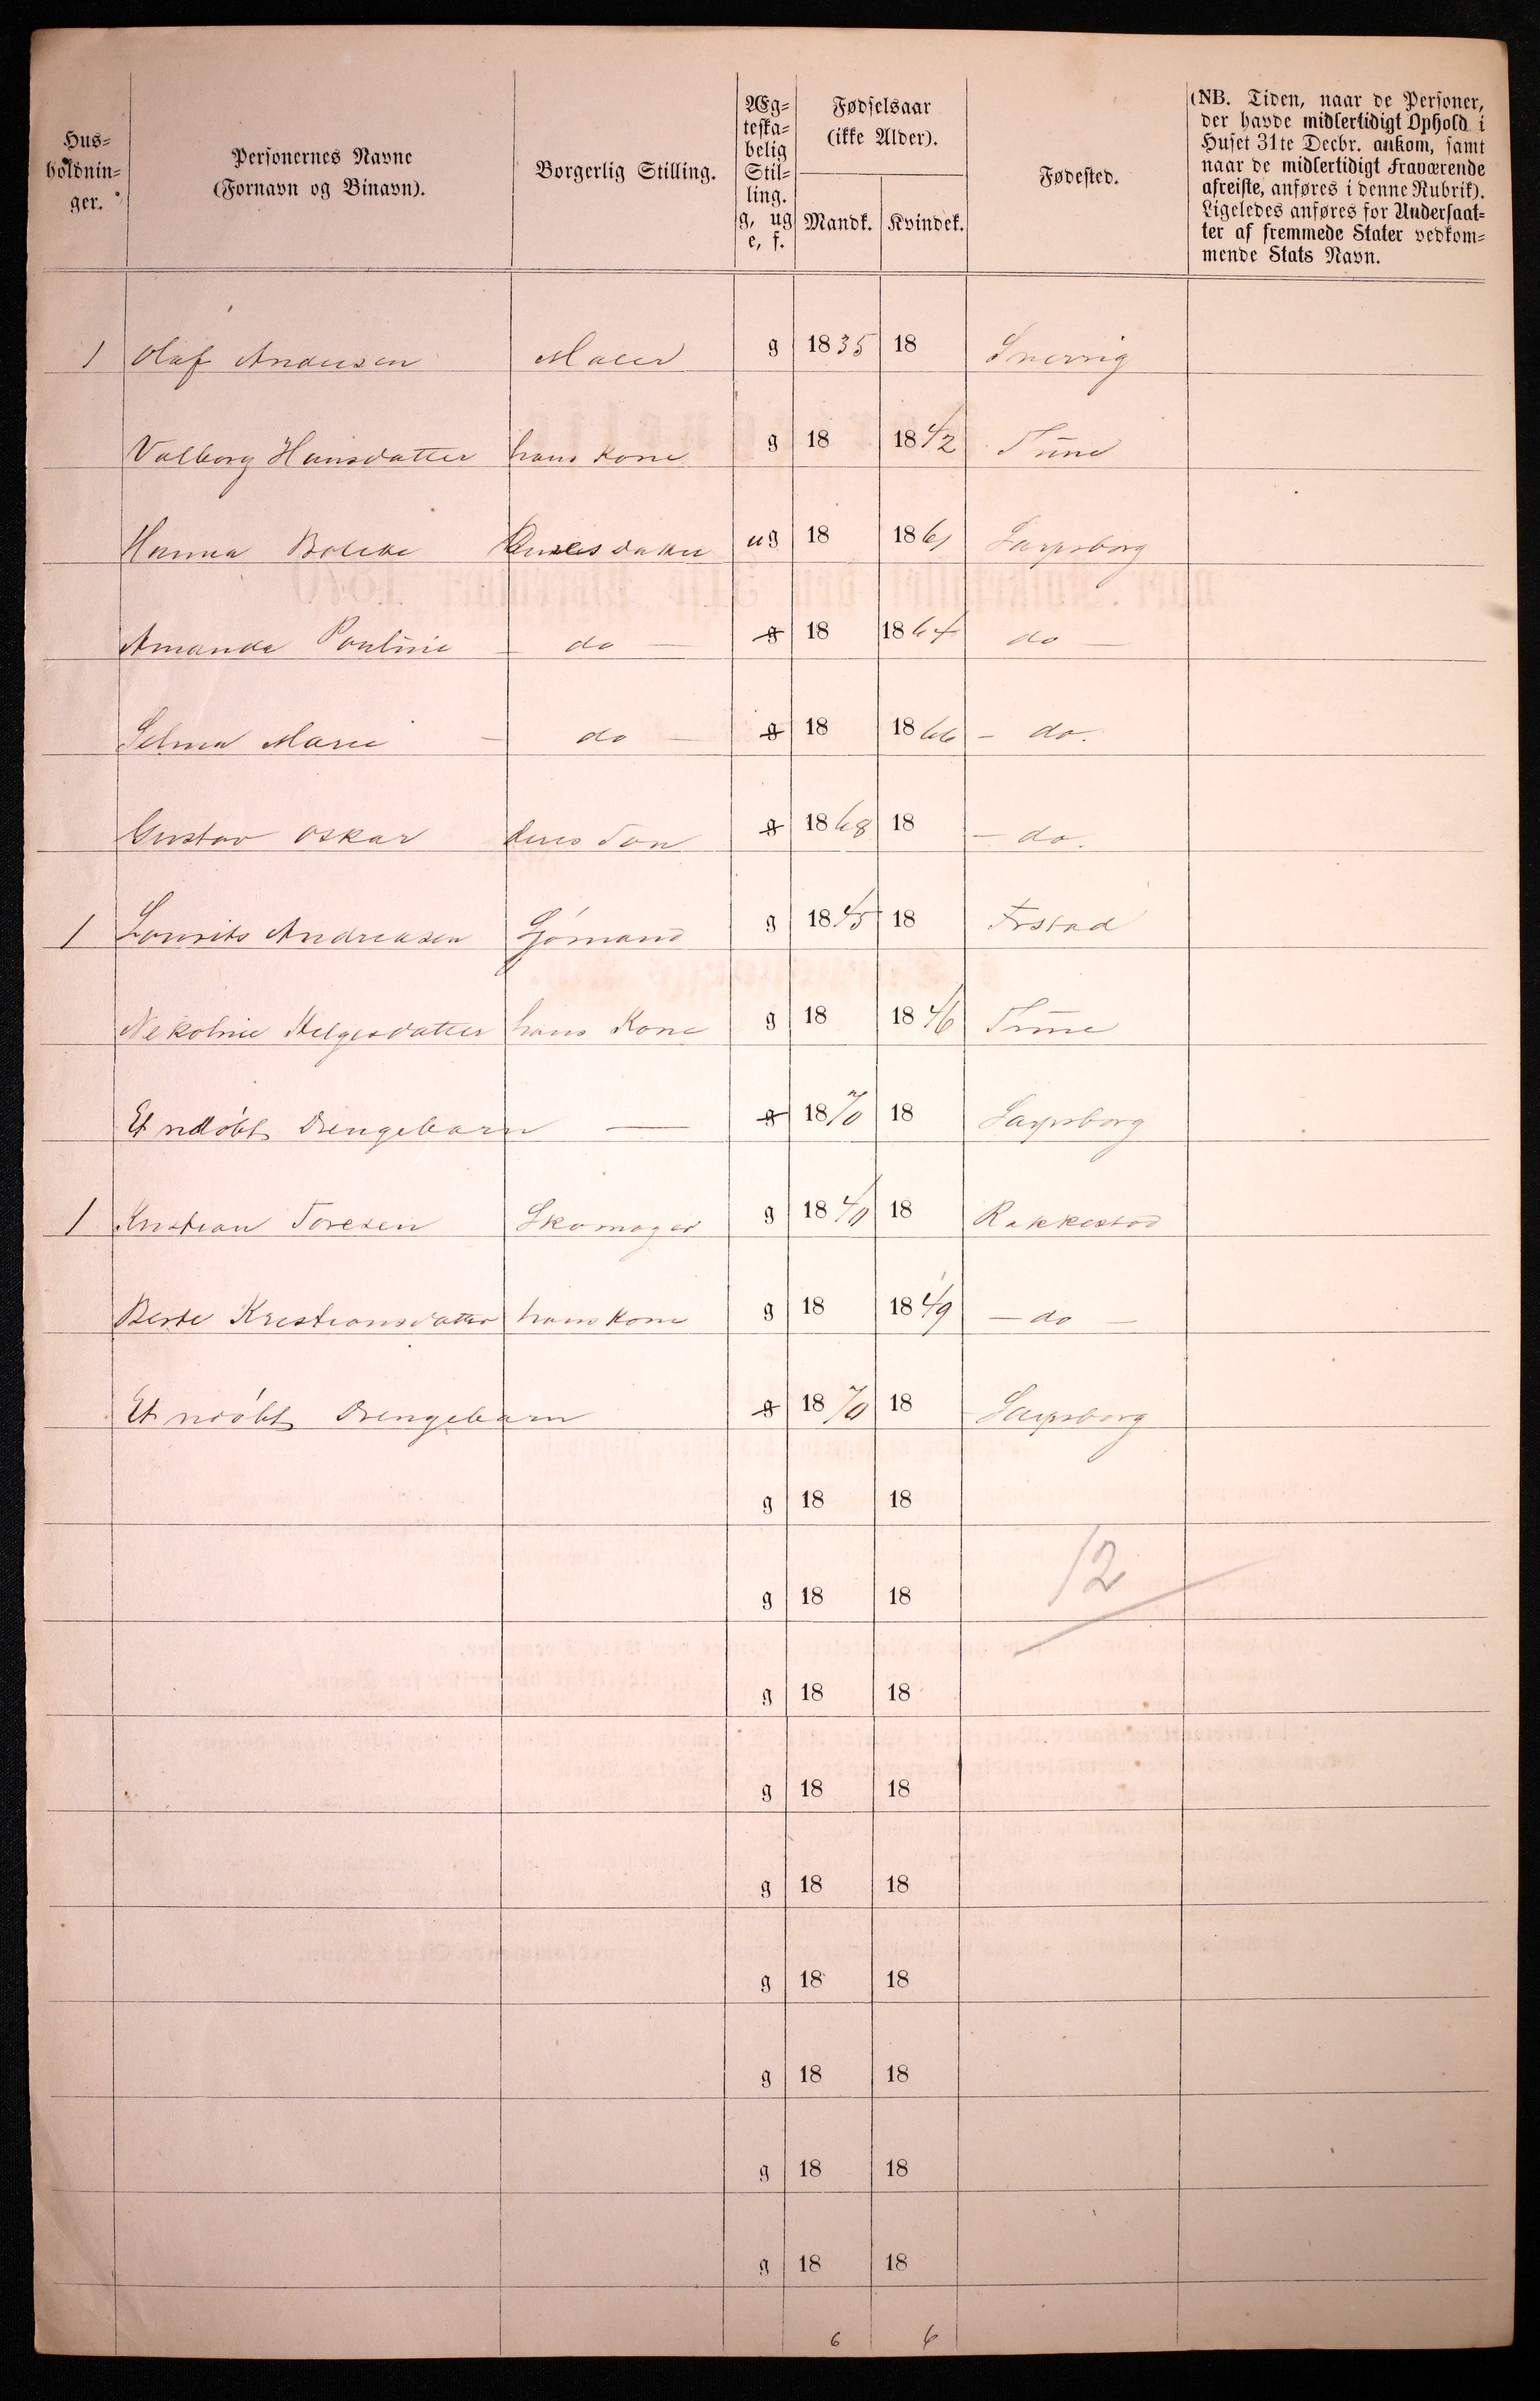 Hus=
holdnin=
ger.
Personernes Navne
(Fornavn og Binavn).
Borgerlig Stilling.
Æg=
teska=
belig
Stil=
ling.
g, ug
e, f.
Fødselsaar
(ikke Alder).
Mandk. Kvindek.
Fødested.
(NB. Tiden, naar de Personer,
der havde midlertidigt Ophold i
Huset 31te Decbr. ankom, samt
naar de midlertidigt fraværende
afreiste, anføres i denne Rubrik).
Ligeledes anføres for Undersaat=
ter af fremmede Stater vedkom=
mende Stats Navn.
1 Olaf Andersen Maler g 1835 18 Sverrig
Valborg Hansdatter hans Kone g 18 1842 Tune
Hanna Deres datter ug 18 1861 Sarpsborg
Amanda Pouline — do — g 18 1864 do —
Selma Marie — do — g 18 1866 — do.
Gustav Oskar deres Søn g 1868 18 — do.
1 Lourits Andreasen Sjømand g 1845 18
Nekoline Helgesdatter hans Kone g 18 1846 Tune
Et udøbt Drengebarn — g 1870 18 Sarpsborg
1 Kristian Toresen Skomager g 1840 18 Rakkestad
Berte Krestiansdatter hans Kone g 18 1849 — do —
Et udøbt Drengebarn g 1870 18 Sarpsborg
g 18 18
g 18 18 12
g 18 18
g 18 18
g 18 18
g 18 18
g 18 18
g 18 18
g 18 18
6 6